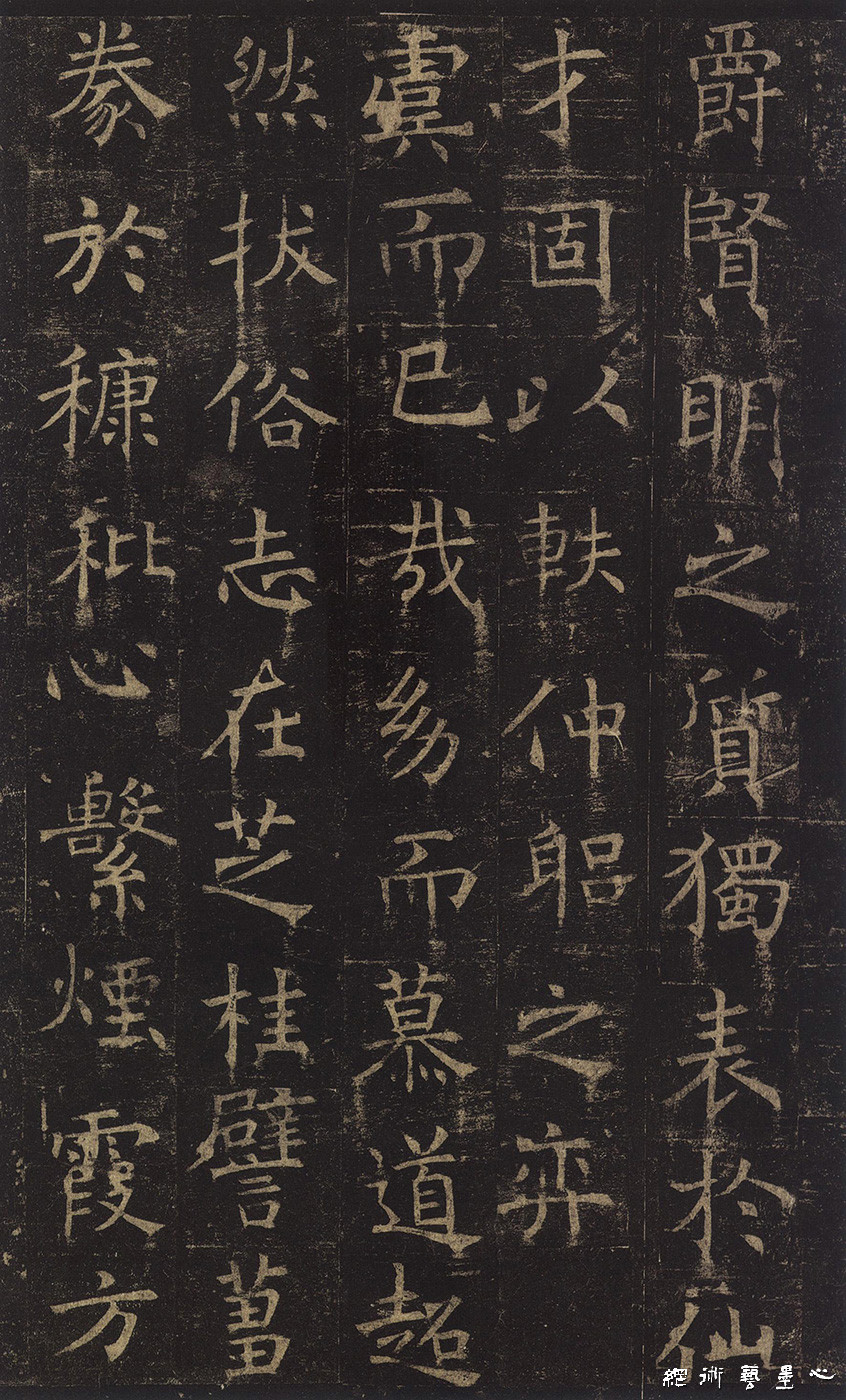 爵賢明之質獨表於仙
才固以軼仲躳之弈
虞而已哉幼而慕道超
然拔俗志在芝桂譬芻
豢於穅秕心繫煙霞方
心墨藝術網